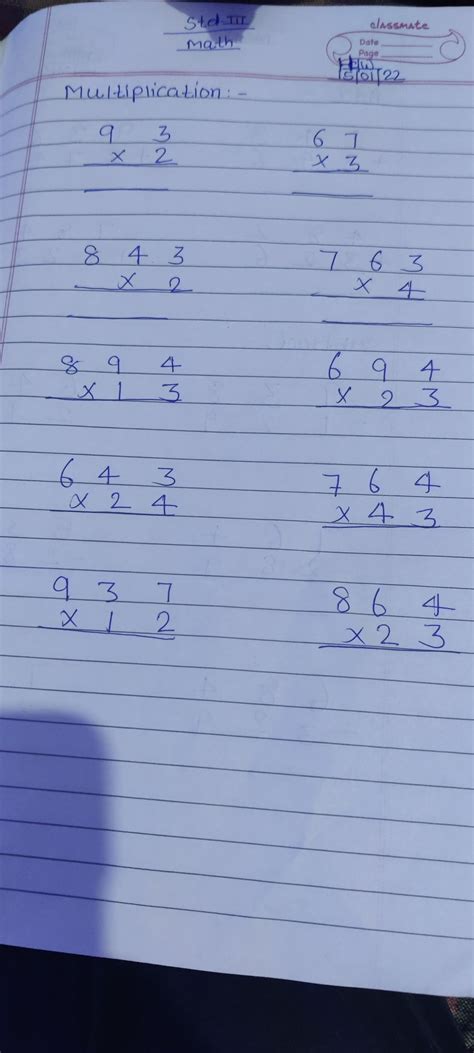 Std. III
Math
classmate
Date
Page
H.W
15/01/22
Multiplication:-
9 3
x 2
6 7
x 3
8 4 3
x 2
7 6 3
x 4
8 9 4
x 1 3
6 9 4
x 2 3
6 4 3
x 2 4
7 6 4
x 4 3
9 3 7
x 1 2
8 6 4
x 2 3